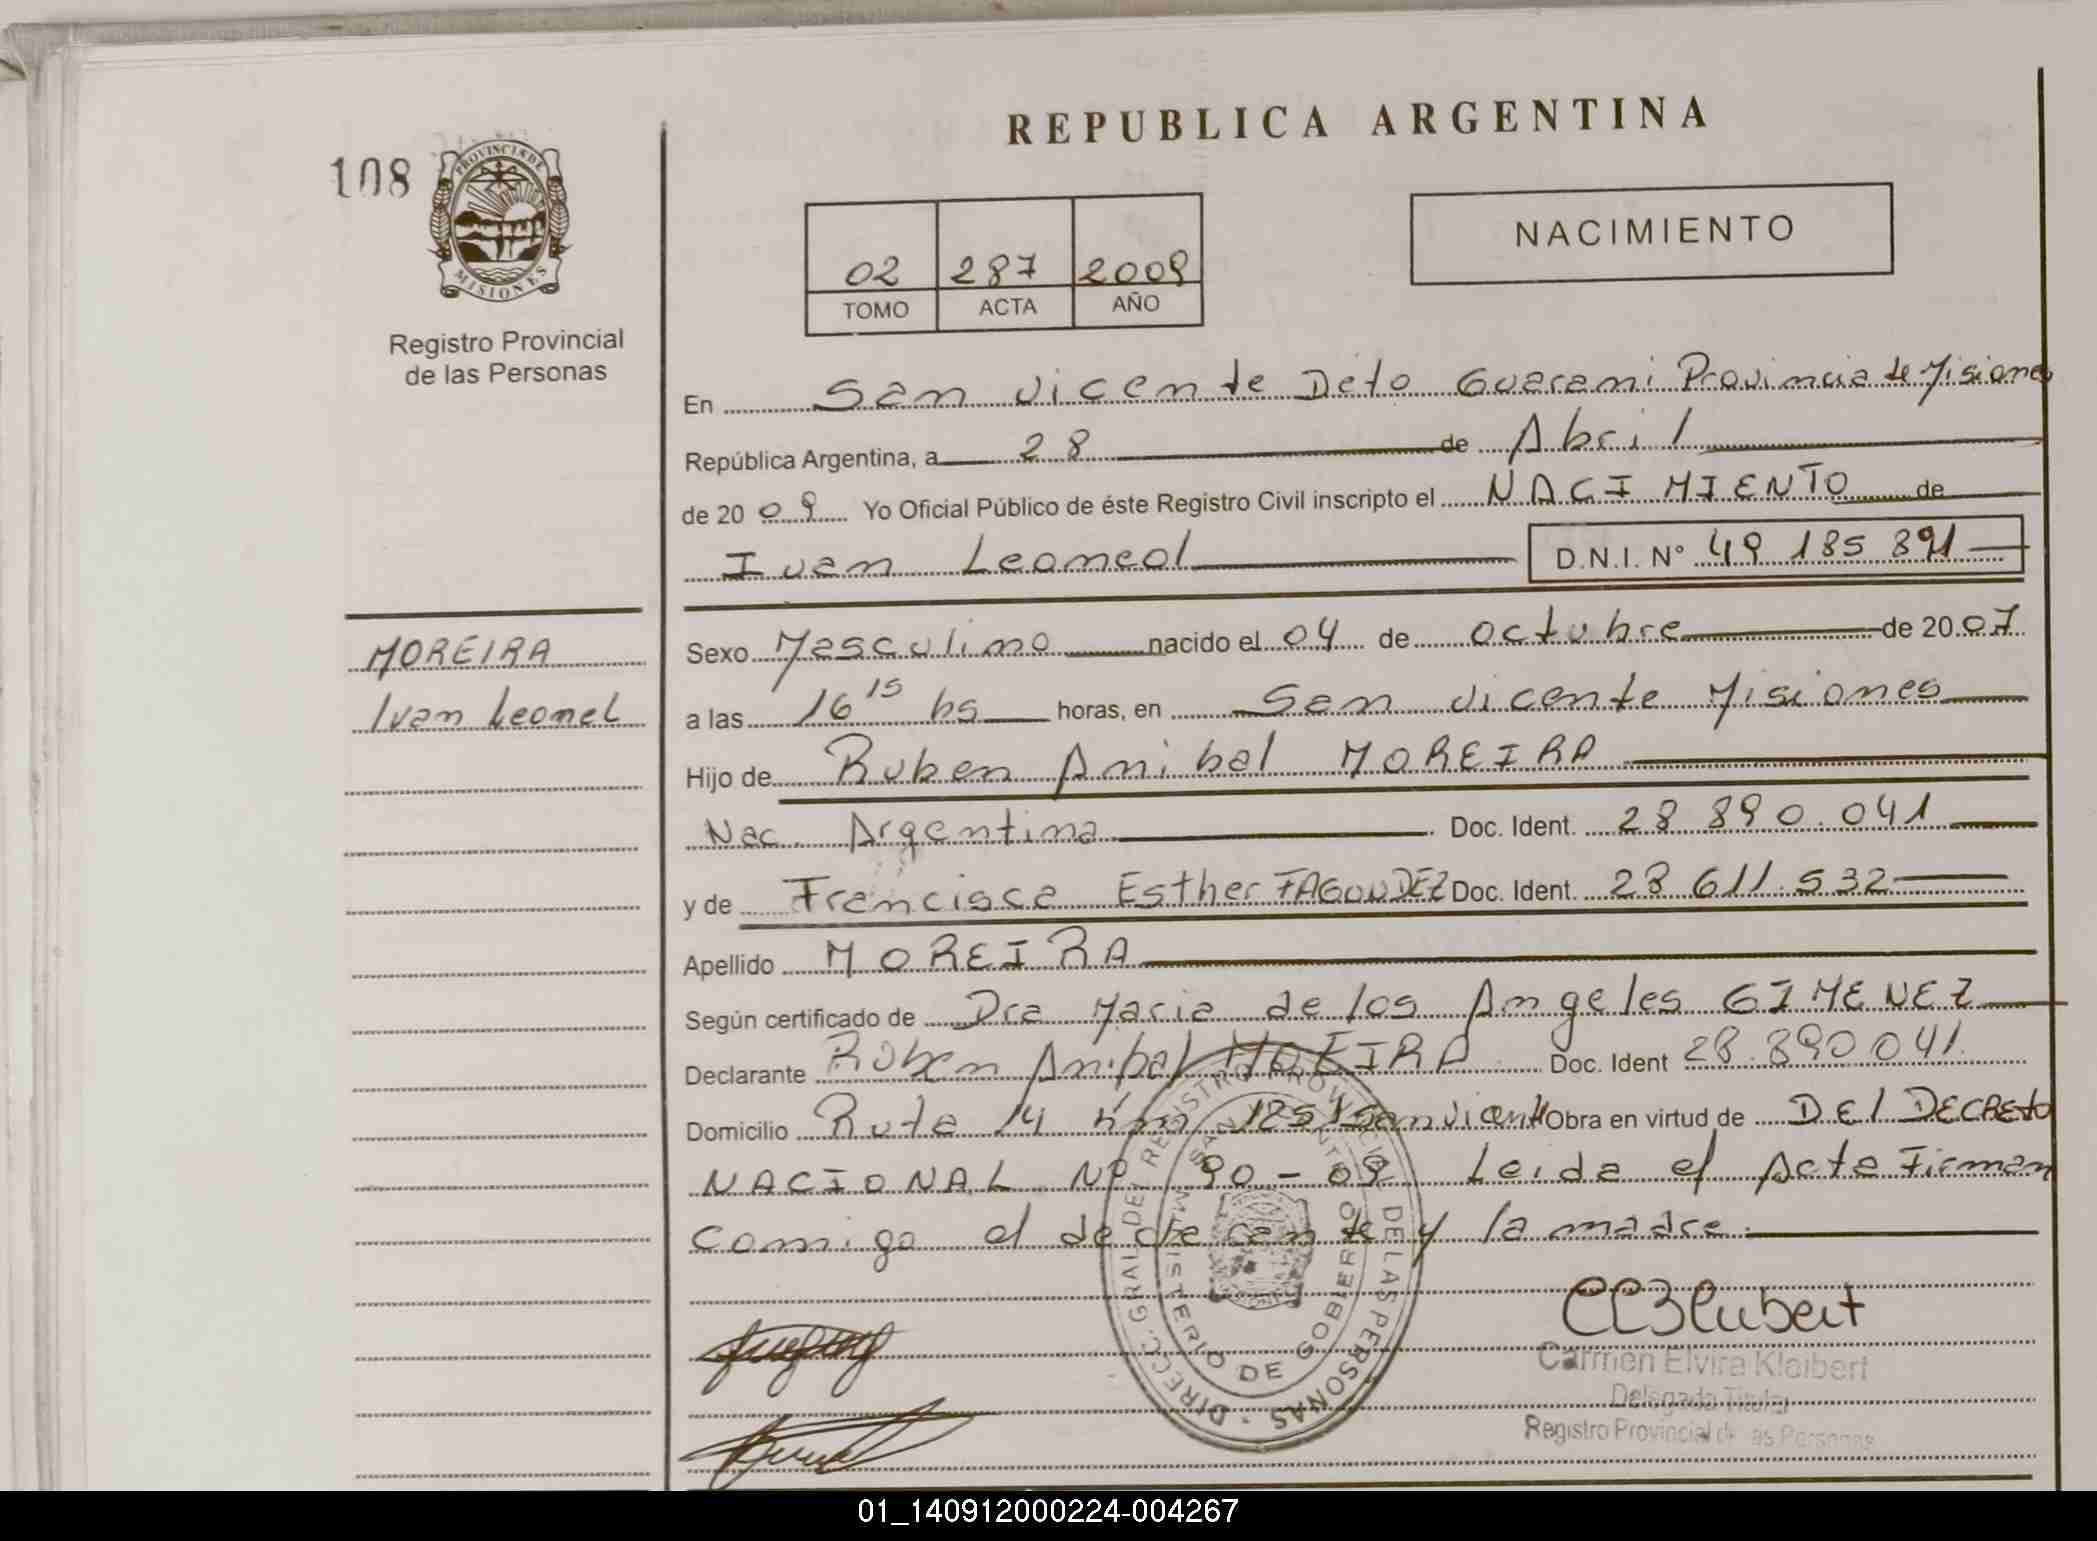 REPUBLICA ARGENTINA
108
PROVINCIA DE
MISIONES
Registro Provincial
de las Personas
02 287 2009
TOMO ACTA AÑO
NACIMIENTO
En San Vicente Dpto Guarani Provincia de Misiones
República Argentina, a 28 de Abril
de 20 09 Yo Oficial Público de éste Registro Civil inscripto el NACIMIENTO de
Ivan Leonel D.N.I. N° 49 185 891
MOREIRA
Ivan Leonel
Sexo Masculino nacido el 04 de octubre de 20 07
a las 16 15 hs horas, en San Vicente Misiones
Hijo de Ruben Anibal MOREIRA
Nac. Argentina Doc. Ident. 28 890.041
y de Francisca Esther FAGUNDEZ Doc. Ident. 28 611.532
Apellido MOREIRA
Según certificado de Dra Maria de los Angeles GIMENEZ
Declarante Ruben Anibal MOREIRA Doc. Ident 28.890041
Domicilio Ruta 14 Km 1251 San Vicente Obra en virtud de DEl DECRETO
NACIONAL Nº 90-09 Leida el Acta Firman
comigo el declarante y la madre.
DIRECC. GRAL DEL REGISTRO PROVINCIAL DE LAS PERSONAS
MINISTERIO DE GOBIERNO
SAN VICENTE
Carmen Elvira Klaibert
Delegada Titular
Registro Provincial de las Personas
01_140912000224-004267